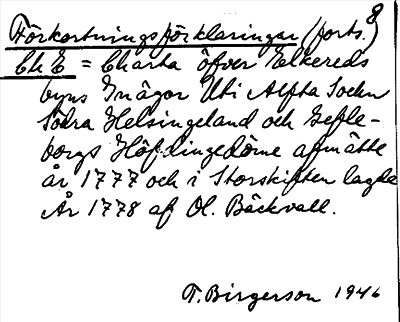 8
Förkortningsförklaringar (forts.)
Ch E = Charta öfver Elkereds
byns Inägor Uti Alfta Sockn
Södra Helsingeland och Gefle-
borgs Höfdingedöme afmätte
år 1777 och i Storskiften lagde
År 1778 af Ol. Bäckvall.
T. Birgerson 1946